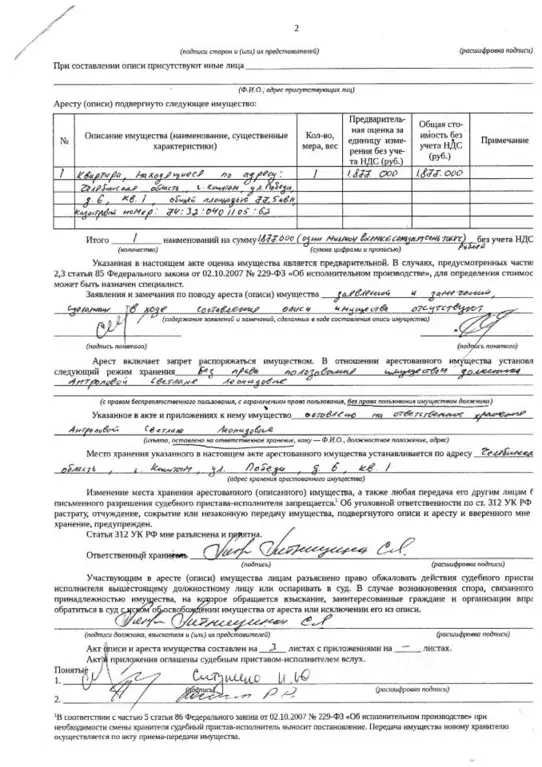 2
(подписи сторон и (или) их представителей) (расшифровка подписи)
При составлении описи присутствуют иные лица
(Ф.И.О.; адрес присутствующих лиц)
Аресту (описи) подвергнуто следующее имущество:
№ Описание имущества (наименование, существенные характеристики) Кол-во, мера, вес Предваритель- ная оценка за единицу изме- рения без уче- та НДС (руб.) Общая сто- имость без учета НДС (руб.) Примечание
1 Квартира, находящиеся по адресу: 1 1877.000 1877.000
Челябинская область, г. ул. Победы,
д. 6, кв. 1, общей площадью 77,5 кв.м
кадастровый номер: 74:32:0401105:62
Итого 1 наименований на сумму 1877.000 (один миллион восемьсот семьдесят семь тысяч) рублей без учета НДС
(количество) (сумма цифрами и прописью)
Указанная в настоящем акте оценка имущества является предварительной. В случаях, предусмотренных частя
2,3 статьи 85 Федерального закона от 02.10.2007 № 229-ФЗ «Об исполнительном производстве», для определения стоимос
может быть назначен специалист.
Заявления и замечания по поводу ареста (описи) имущества заявлений и замечаний,
в ходе составления описи имущества отсутствуют
(содержание заявлений и замечаний, сделанных в ходе составления описи имущества)
(подпись понятого) (подпись понятого)
Арест включает запрет распоряжаться имуществом. В отношении арестованного имущества установл
следующий режим хранения без права пользования имуществом должником
Антроповой Светлане Леонидовне
(с правом беспрепятственного пользования, с ограничением права пользования, без права пользования имуществом должника)
Указанное в акте и приложениях к нему имущество оставлено на ответственное хранение
Антроповой Светлане Леонидовне
(изъято, оставлено на ответственное хранение, кому — Ф.И.О., должностное положение, адрес)
Место хранения указанного в настоящем акте арестованного имущества устанавливается по адресу Челябинская
область, г. ул. Победы, д. 6, кв. 1
(адрес хранения арестованного имущества)
Изменение места хранения арестованного (описанного) имущества, а также любая передача его другим лицам б
письменного разрешения судебного пристава-исполнителя запрещается.¹ Об уголовной ответственности по ст. 312 УК РФ
растрату, отчуждение, сокрытие или незаконную передачу имущества, подвергнутого описи и аресту и вверенного мне
хранение, предупрежден.
Статья 312 УК РФ мне разъяснена и понятна.
Ответственный хранитель С.Л.
(подпись) (расшифровка подписи)
Участвующим в аресте (описи) имущества лицам разъяснено право обжаловать действия судебного приста
исполнителя вышестоящему должностному лицу или оспорить в суд. В случае возникновения спора, связанного
принадлежностью имущества, на которое обращается взыскание, заинтересованные граждане и организации впра
обратиться в суд с иском об освобождении имущества от ареста или исключении его из описи.
С.Л.
(подписи должника, взыскателя и (или) их представителей) (расшифровка подписи)
Акт описи и ареста имущества составлен на 3 листах с приложениями на — листах.
Акт и приложения оглашены судебным приставом-исполнителем вслух.
Понятые
1.
(подпись) (расшифровка подписи)
2.
¹В соответствии с частью 5 статьи 86 Федерального закона от 02.10.2007 № 229-ФЗ «Об исполнительном производстве» при
необходимости смены хранителя судебный пристав-исполнитель выносит постановление. Передача имущества новому хранителю
осуществляется по акту приема-передачи имущества.